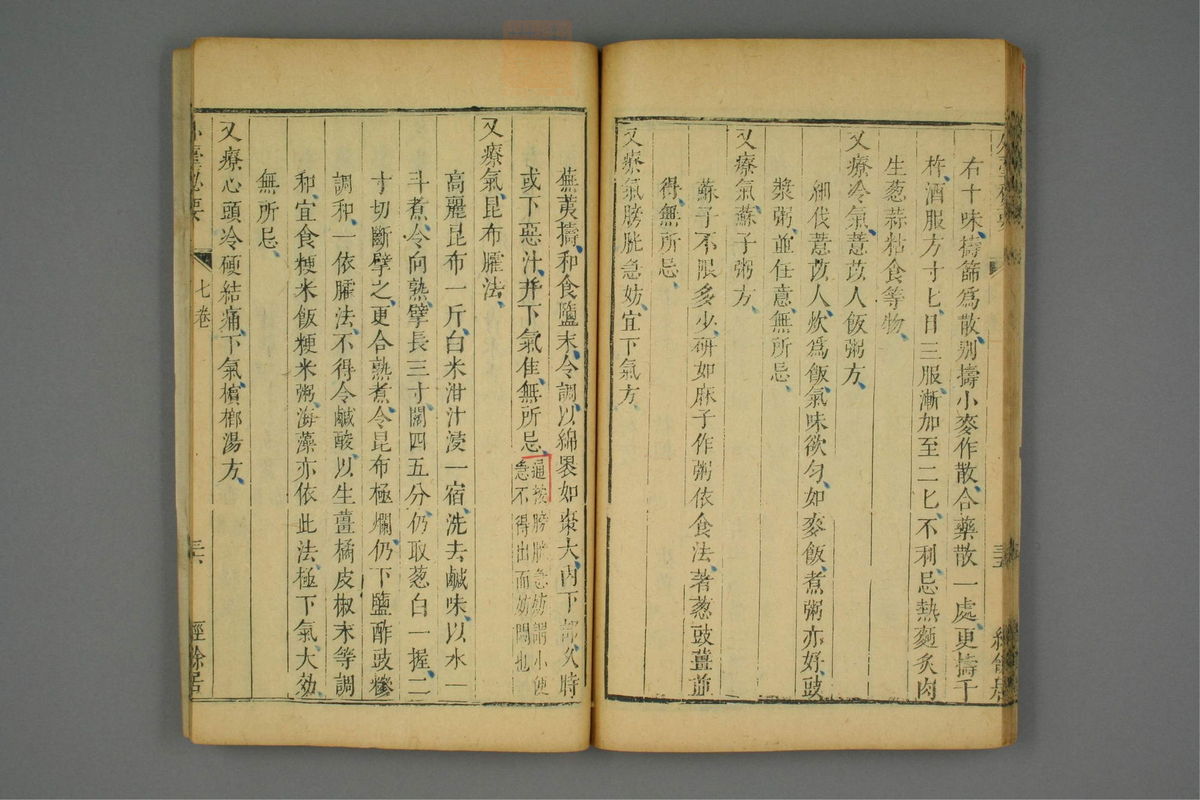 右十味擣篩為散别擣小麥作散合藥散一處更擣千
杵酒服方寸匕日三服漸加至二匕不利忌熱麵炙肉
生葱蒜粘食等物
又療冷氣薏苡人飯粥方
細伐薏苡人炊為飯氣味欲匀如麥飯煮粥亦好豉
漿粥並任意無所忌
又療氣蘇子粥方
蘇子不限多少研如麻子作粥依食法著葱豉薑並
得無所忌
又療氣膀胱急妨宜下氣方
蕪荑擣和食鹽末令調以綿裹如棗大内下部久時
或下惡汁并下氣佳無所忌
逼按膀胱急妨謂小便
急不得出而妨悶也
又療氣昆布臛法
高麗昆布一斤白米泔汁浸一宿洗去鹹味以水一
斗煮令向熟擘長三寸闊四五分仍取葱白一握二
寸切斷擘之更合熟煮令昆布極爛仍下鹽酢豉糝
調和一依臛法不得令鹹酸以生薑橘皮椒末等調
和宜食粳米飯粳米粥海藻亦依此法極下氣大効
無所忌
又療心頭冷硬結痛下氣檳榔湯方
外臺祕要
七卷
三六
經餘居